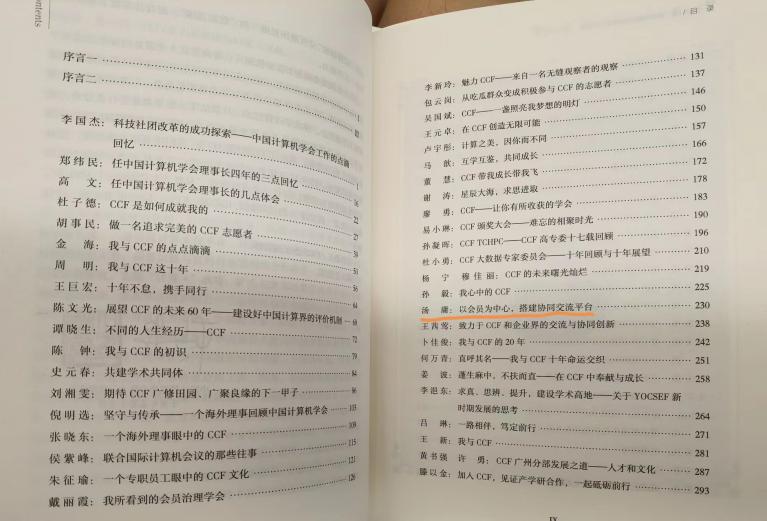 Contents
序言一 I
序言二 III
李国杰：科技社团改革的成功探索——中国计算机学会工作的点滴
回忆 1
郑纬民：任中国计算机学会理事长四年的三点回忆 16
高 文：任中国计算机学会理事长的几点体会 22
杜子德：CCF 是如何成就我的 27
胡事民：做一名追求完美的 CCF 志愿者
金 海：我与 CCF 的点点滴滴
周 明：我与 CCF 这十年
王巨宏：十年不怠，携手同行 64
陈文光：展望 CCF 的未来 60 年——建设好中国计算界的评价机制 68
谭晓生：不同的人生经历——CCF 72
陈 钟：我与 CCF 的初识
史元春：共建学术共同体 84
刘湘雯：期待 CCF 广修田园、广聚良缘的下一甲子
倪明选：坚守与传承——一个海外理事回顾中国计算机学会 105
张晓东：一个海外理事眼中的 CCF 109
侯紫峰：联合国际计算机会议的那些往事 115
朱征瑜：一个专职员工眼中的 CCF 文化 121
戴丽霞：我所看到的会员治理学会 129
目 录
李新玲：魅力 CCF——来自一名无缝观察者的观察 131
包云岗：从吃瓜群众变成积极参与 CCF 的志愿者 137
吴国斌：CCF——一盏照亮我梦想的明灯 146
王元卓：在 CCF 创造无限可能 150
卢宇彤：计算之美，因你而不同 157
马 歆：互学互鉴，共同成长 166
董 慧：CCF 带我成长带我飞 172
谢 涛：星辰大海，求思进取 178
廖 勇：CCF——让你有所收获的学会 183
易小琳：CCF 颁奖大会——难忘的相聚时光 190
孙凝晖：CCF TCHPC——CCF 高专委十七载回顾 196
杜小勇：CCF 大数据专家委员会——十年回顾与十年展望 210
杨 宁 穆佳丽：CCF 的未来曙光灿烂 219
孙 毅：我心中的 CCF 225
汤 庸：以会员为中心，搭建协同交流平台 230
王茜莺：致力于 CCF 和企业界的交流与协同创新 238
卜佳俊：我与 CCF 的 20 年 242
何万青：直呼其名——我与 CCF 十年命运交织 251
姜 波：蓬生麻中，不扶而直——在 CCF 中奉献与成长 258
李浥东：求真、思辨、提升，建设学术高地——关于 YOCSEF 新
时期发展的思考 264
吕 琳：一路相伴，笃定前行 271
王 新：我与 CCF 281
黄书强 许 勇：CCF 广州分部发展之道——人才和文化 287
滕以金：加入 CCF，见证产学研合作，一起砥砺前行 293
IX